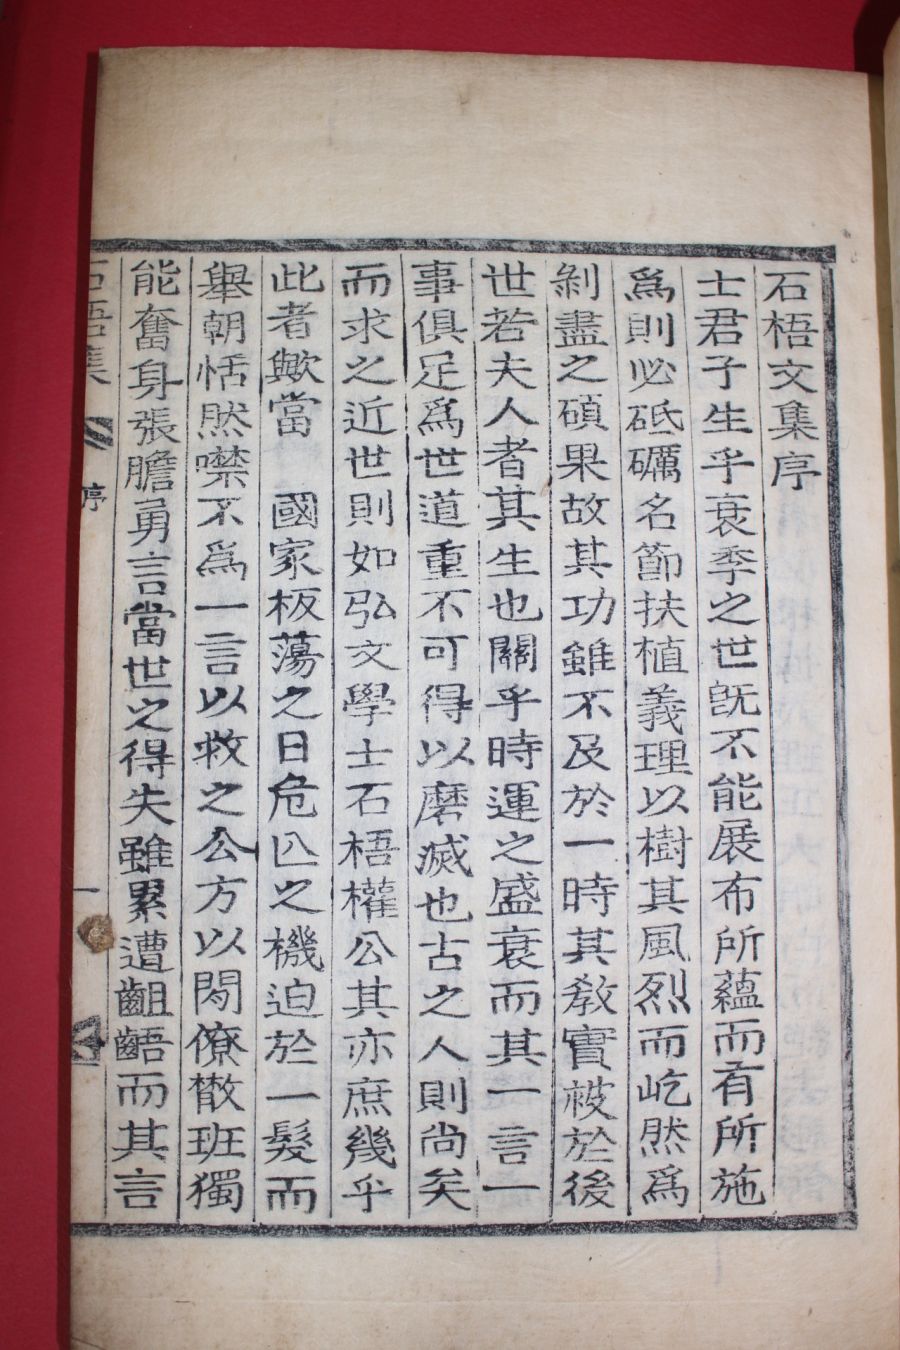 石梧文集序
士君子生乎衰季之世旣不能展布所蘊而有所施
爲則必砥礪名節扶植義理以樹其風烈而屹然爲
剝盡之碩果故其功雖不及於一時其教實被於後
世若夫人者其生也關乎時運之盛衰而其一言一
事俱足爲世道重不可得以磨滅也古之人則尚矣
而求之近世則如弘文學士石梧權公其亦庶幾乎
此者歟當 國家板蕩之日危亡之機迫於一髮而
擧朝恬然噤不爲一言以救之公方以閒僚散班獨
能奮身張膽勇言當世之得失雖累遭齟齬而其言
石梧集 序 一